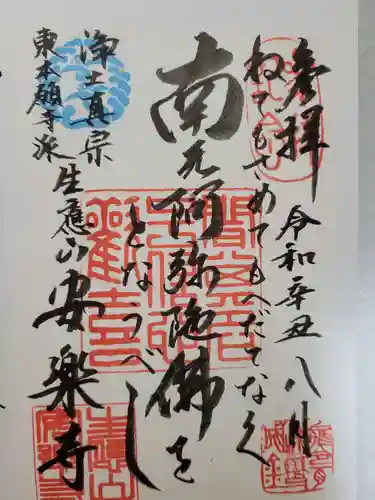 参拝
令和辛丑八月
ねてもさめてもへだてなく
南无阿弥陀佛を
となうべし
浄土真宗
東本願寺派
生應山安楽寺